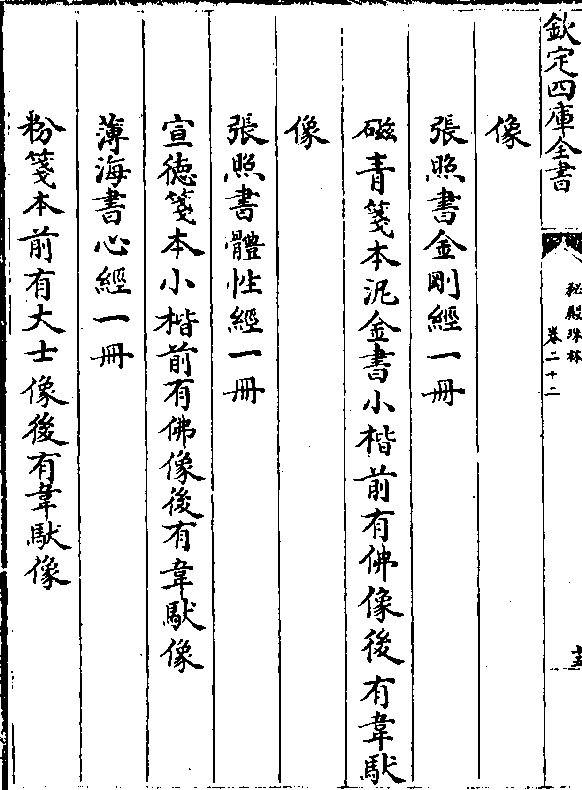 欽定四庫全書
秘殿珠林
卷二十二
十三
像
張照書金剛經一冊
磁青箋本泥金書小楷前有佛像後有韋馱
像
張照書體性經一冊
宣德箋本小楷前有佛像後有韋馱像
薄海書心經一冊
粉箋本前有大士像後有韋馱像